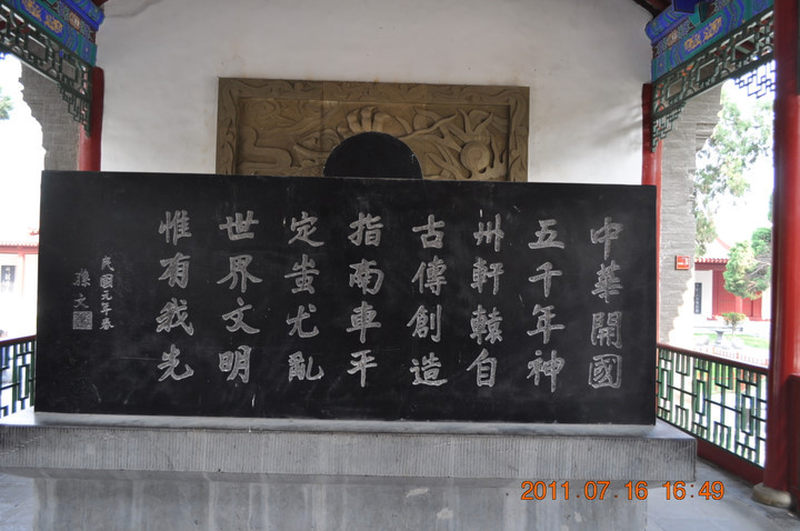 中華開國
五千年神
州軒轅自
古傳創造
指南車平
定蚩尤亂
世界文明
惟有我先
民國元年春
孫文
2011.07.16 16:49